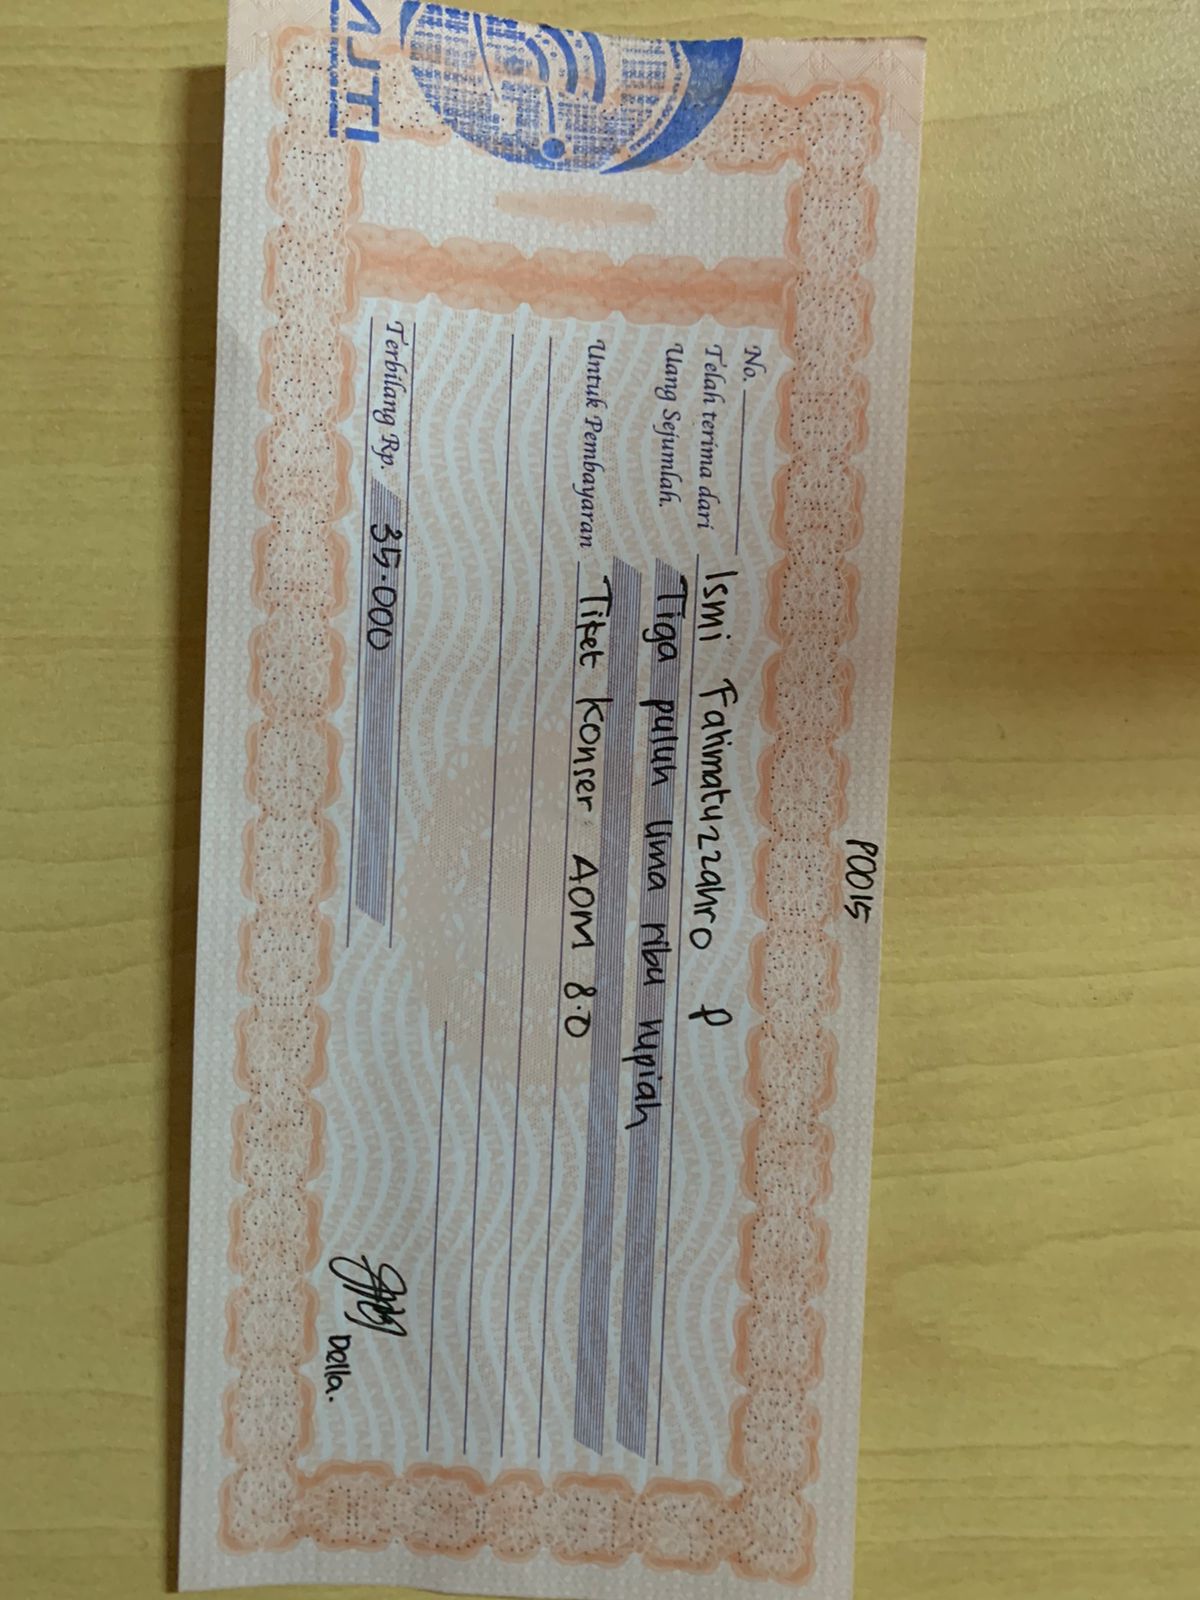 P0015
No.
Telah terima dari Ismi Fatimatuzzahro P
Uang Sejumlah. Tiga puluh lima ribu rupiah
Untuk Pembayaran Tiket Konser AOM 8.0
Terbilang Rp. 35.000
Della.
JTI